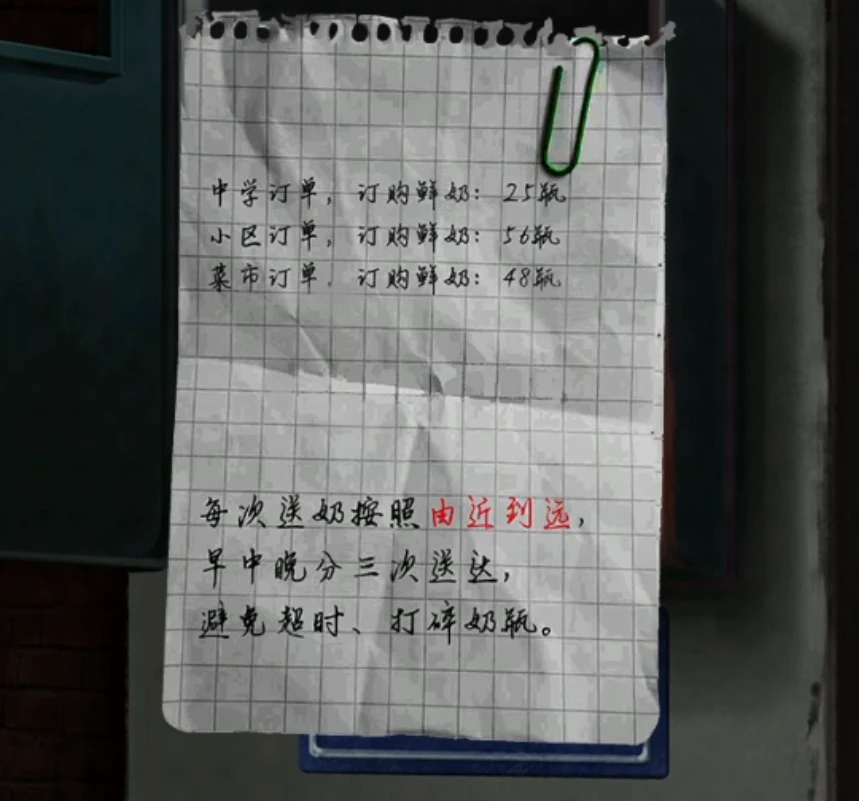 中学订单，订购鲜奶：25瓶
小区订单，订购鲜奶：56瓶
菜市订单，订购鲜奶：48瓶
每次送奶按照由近到远，
早中晚分三次送达，
避免超时、打碎奶瓶。